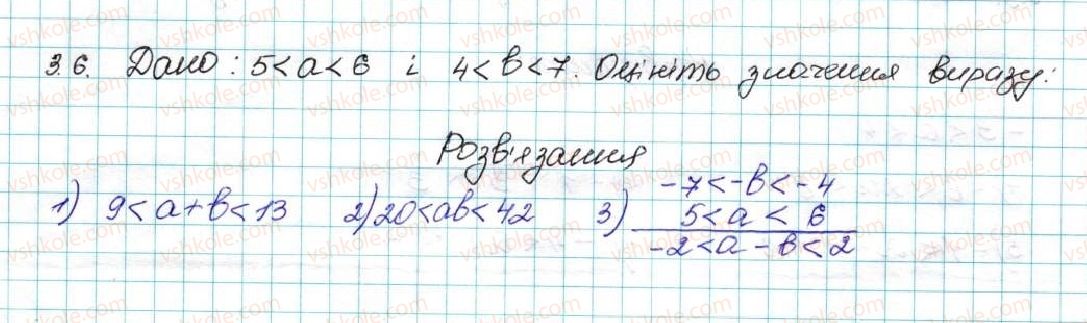 3.6. Дано: 5<a<6 і 4<b<7. Оцініть значення виразу:
Розв'язання
1) 9<a+b<13 2) 20<ab<42 3) -7<-b<-4
5<a<6
-2<a-b<2